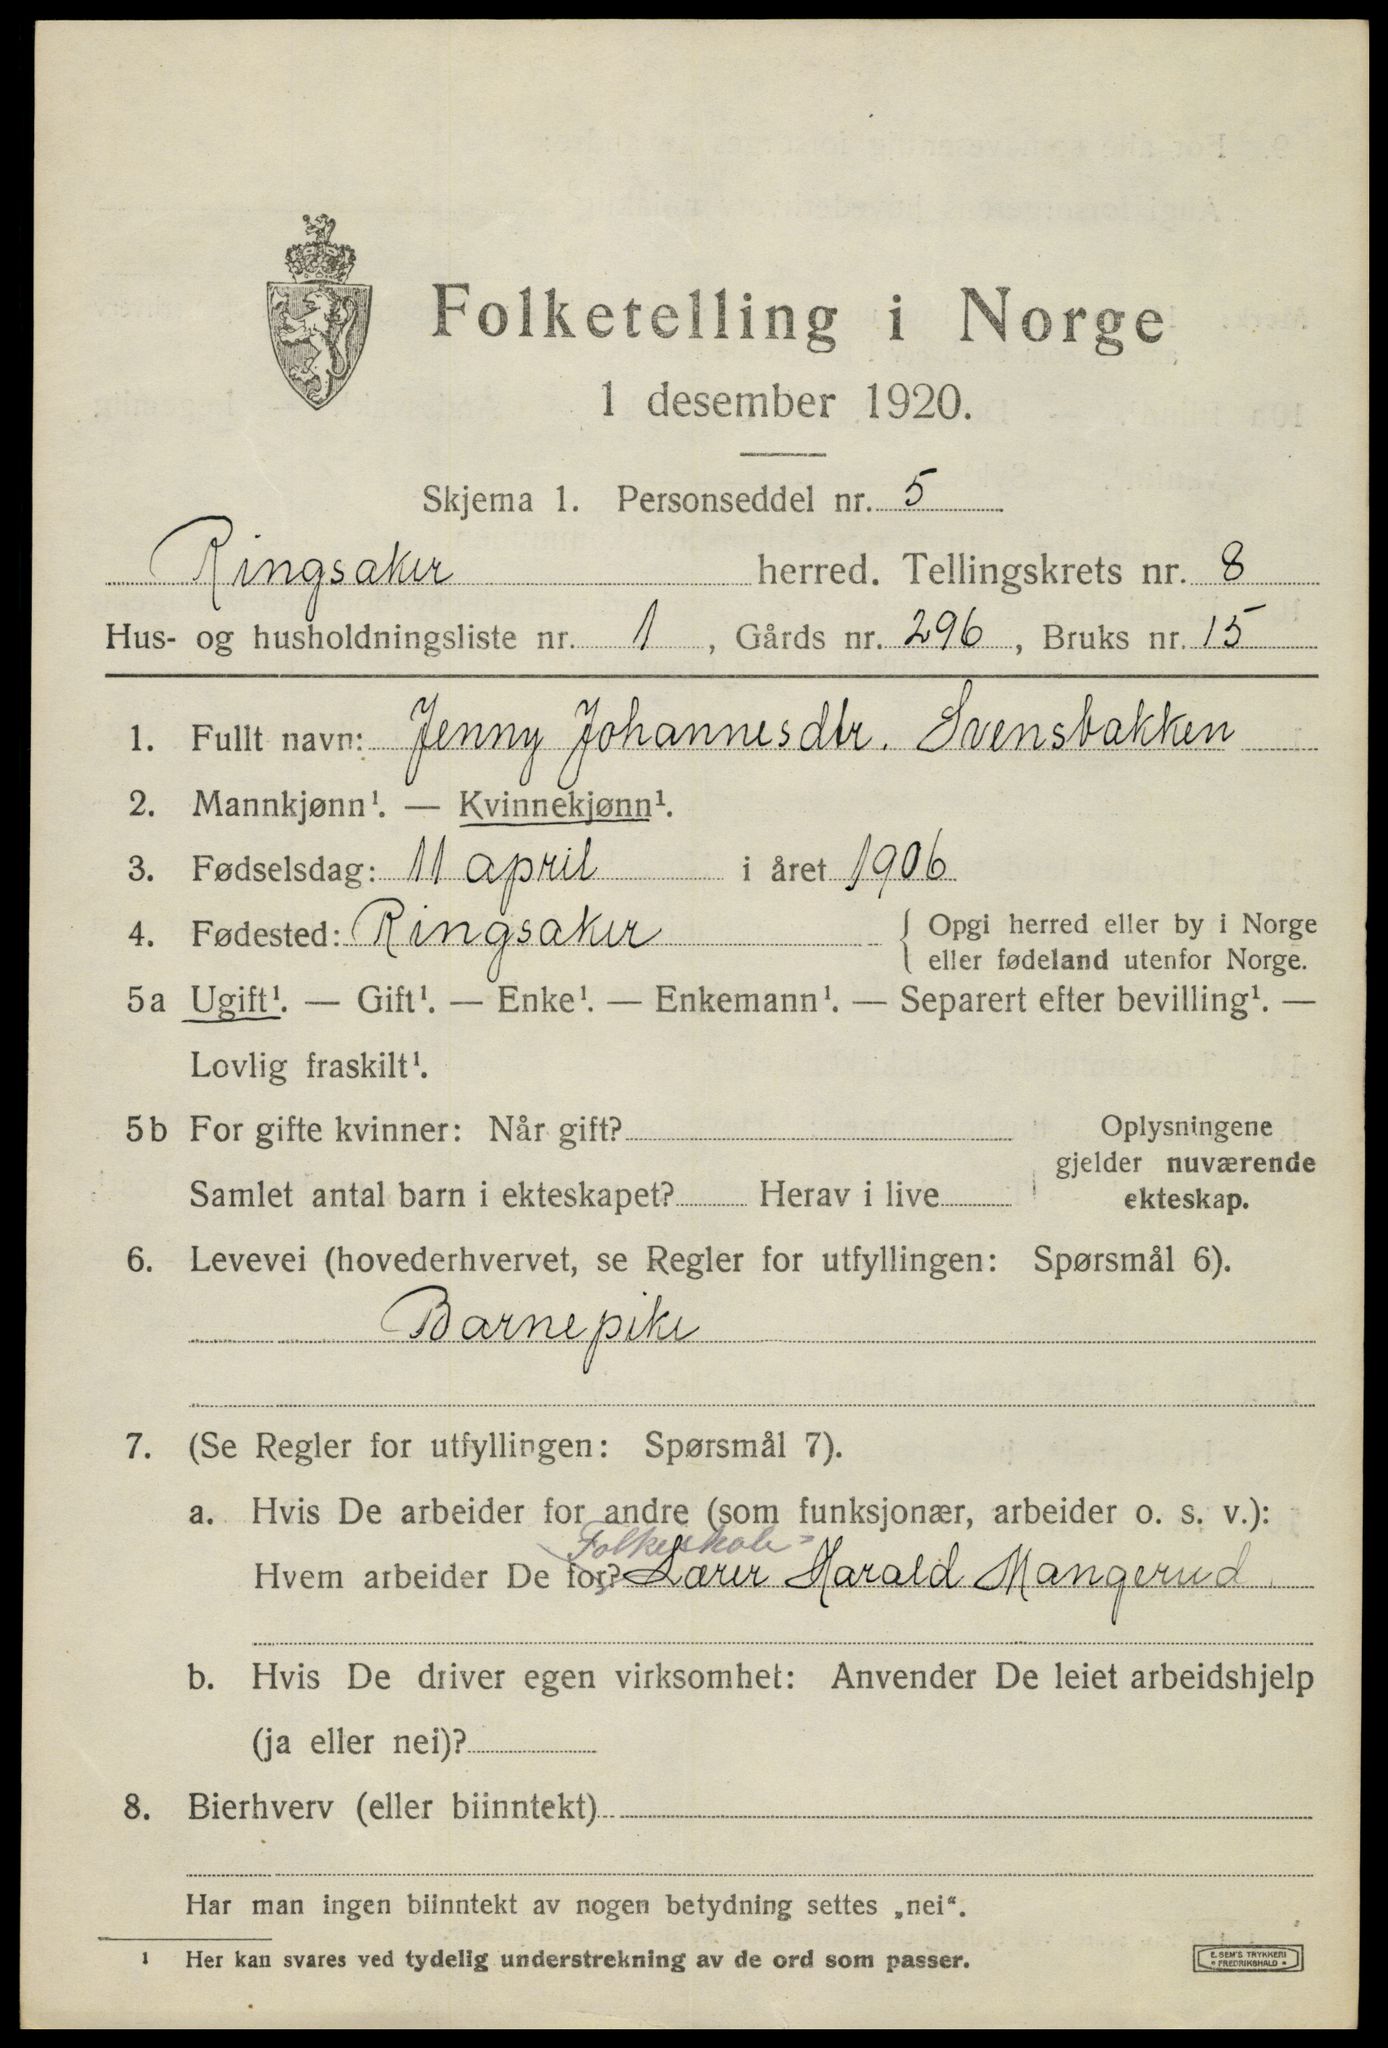 Folketelling i Norge
1 desember 1920.
Skjema 1. Personseddel nr. 5
Ringsaker herred. Tellingskrets nr. 8
Hus- og husholdningsliste nr. 1, Gårds nr. 296, Bruks nr. 15
1. Fullt navn: Jenny Johannesdtr. Svensbakken
2. Mannkjønn¹. — Kvinnekjønn¹.
3. Fødselsdag: 11 april i året 1906
4. Fødested: Ringsaker { Opgi herred eller by i Norge
eller fødeland utenfor Norge.
5a Ugift¹. — Gift¹. — Enke¹. — Enkemann¹. — Separert efter bevilling¹. —
Lovlig fraskilt¹.
5b For gifte kvinner: Når gift?
Samlet antal barn i ekteskapet? Herav i live
Oplysningene
gjelder nuværende
ekteskap.
6. Levevei (hovederhvervet, se Regler for utfyllingen: Spørsmål 6).
Barnepike
7. (Se Regler for utfyllingen: Spørsmål 7).
a. Hvis De arbeider for andre (som funksjonær, arbeider o. s. v.):
Folkeskole-
Hvem arbeider De for? Lærer Harald Mangerud
b. Hvis De driver egen virksomhet: Anvender De leiet arbeidshjelp
(ja eller nei)?
8. Bierhverv (eller biinntekt)
Har man ingen biinntekt av nogen betydning settes „nei“.
¹ Her kan svares ved tydelig understrekning av de ord som passer.
E. SEM'S TRYKKERI
* FREDRIKSHALD *